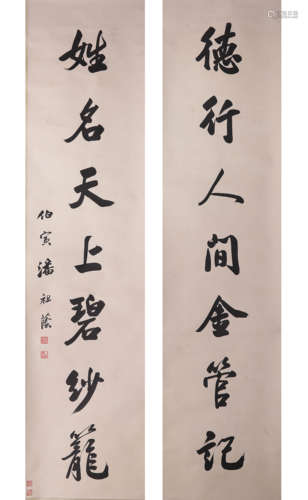 德行人間金管記
姓名天上碧紗籠
伯寅潘祖蔭